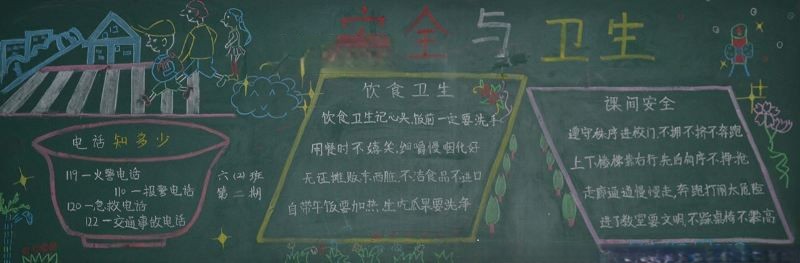 安全与卫生
电话知多少
119－火警电话
110－报警电话
120－急救电话
122－交通事故电话
六(2)班
第二期
饮食卫生
饮食卫生记心头,饭前一定要洗手
用餐时不嬉笑,细嚼慢咽化好
无证摊贩东西脏,不洁食品不进口
自带午饭要加热,生吃瓜果要洗净
课间安全
遵守秩序进校门,不拥不挤不奔跑
上下楼梯靠右行,先后有序不挣抢
走廊通道慢慢走,奔跑打闹太危险
进了教室要文明,不踩桌椅不攀高